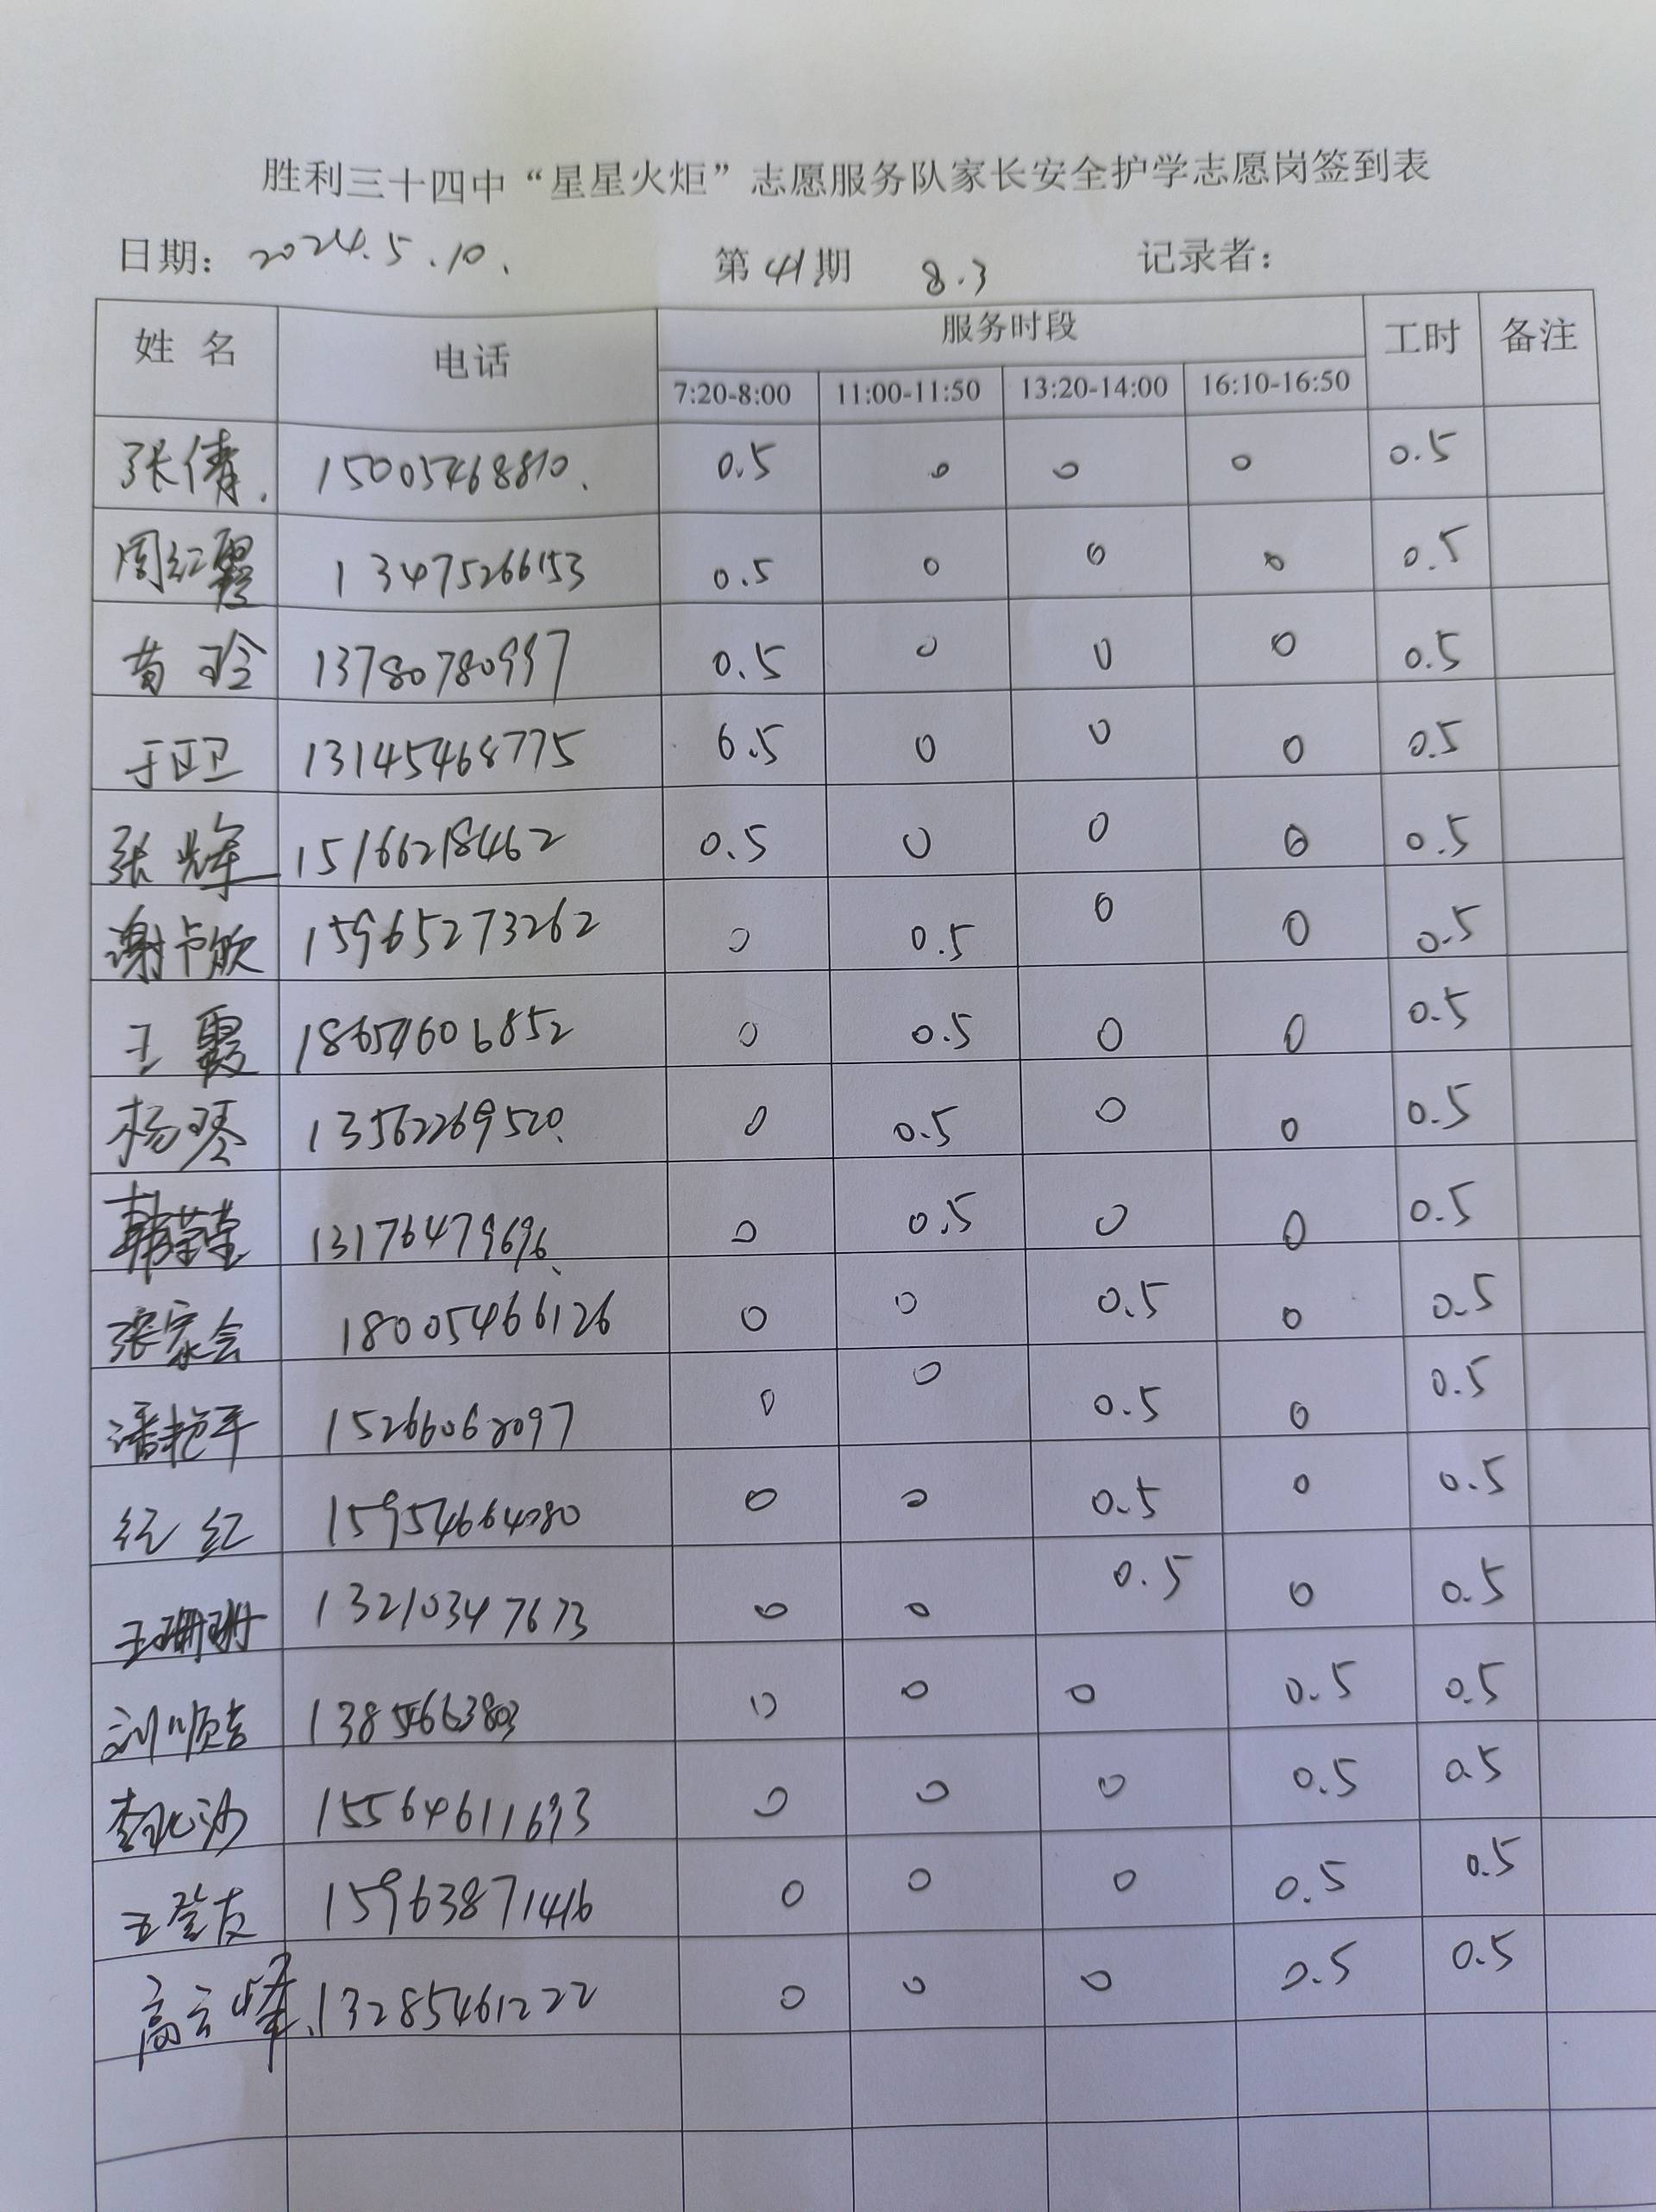 胜利三十四中“星星火炬”志愿服务队家长安全护学志愿岗签到表
日期: 2024.5.10. 第41期 8.3 记录者:
姓 名 电话 服务时段 工时 备注
7:20-8:00 11:00-11:50 13:20-14:00 16:10-16:50
张倩. 15005468810. 0.5 0 0 0 0.5
周红霞 13475266153 0.5 0 0 0 0.5
黄玲 13780780997 0.5 0 0 0 0.5
于正卫 13145468775 0.5 0 0 0 0.5
张辉 15166218462 0.5 0 0 0 0.5
谢 15965273262 0 0.5 0 0 0.5
王霞 18654606852 0 0.5 0 0 0.5
杨琴 13562269520. 0 0.5 0 0 0.5
韩荣堂 13176479696. 0 0.5 0 0 0.5
张家会 18005466126 0 0 0.5 0 0.5
潘艳平 15266068097 0 0 0.5 0 0.5
纪红 15954664080 0 0 0.5 0 0.5
王珊珊 13210347673 0 0 0.5 0 0.5
刘顺吉 0 0 0 0.5 0.5
李沙 15564611693 0 0 0 0.5 0.5
王友 15963871416 0 0 0 0.5 0.5
高云峰. 13285461222 0 0 0 0.5 0.5